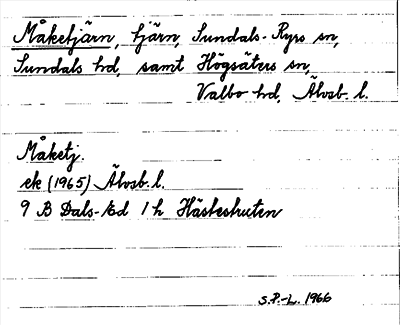 Måketjärn, tjärn, Sundals-Ryrs sn,
Sundals hd, samt Högsäters sn,
Valbo hd, Älvsb. l.
Måketj.
ek (1965) Älvsb. l.
9 B Dals-Ed 1 h Hästeskruten
S.P.-L. 1966